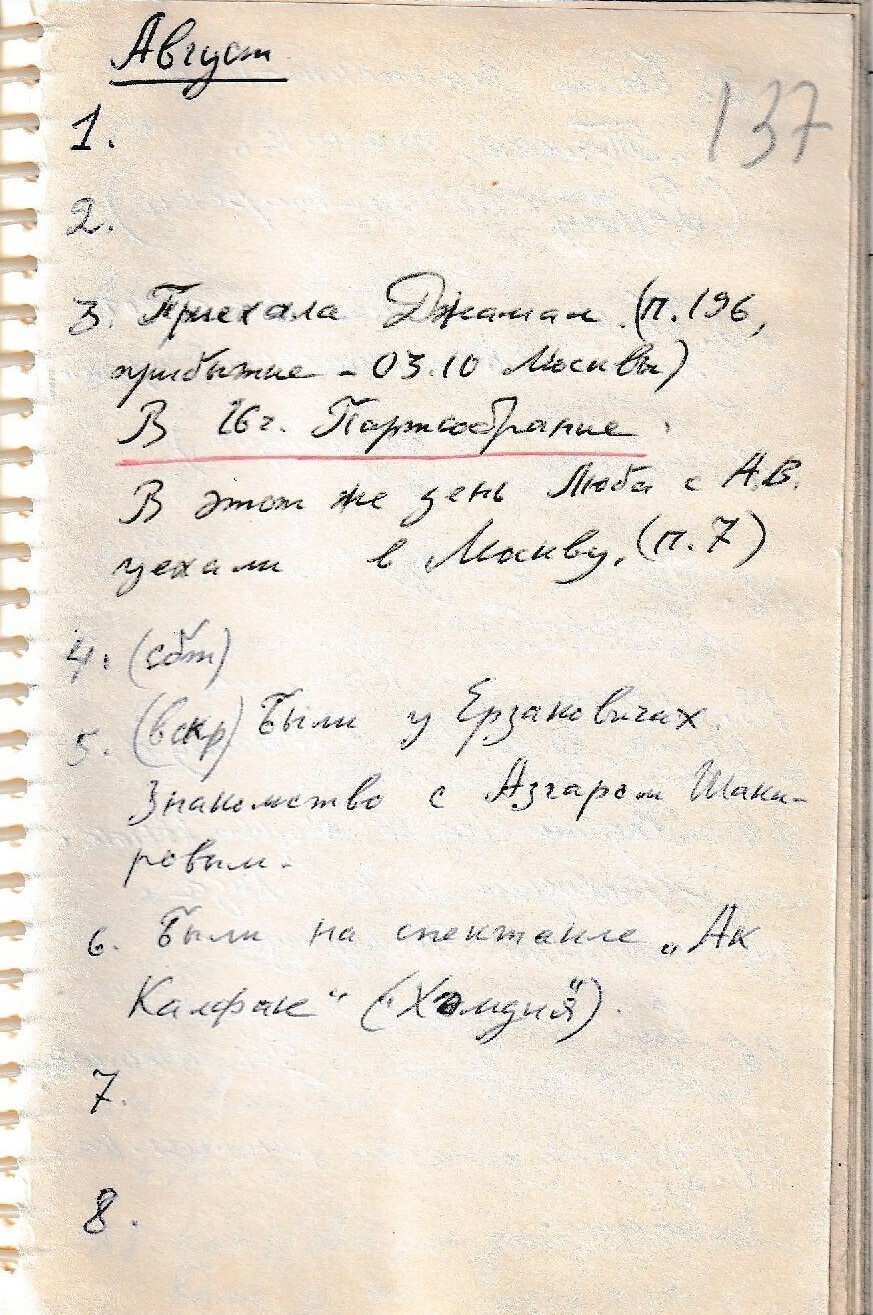 Август
137
1.
2.
3. Приехала Джамал (п. 196,
прибытие - 03.10 Москвы)
В 16 г. Партсобрание.
В этот же день Люба с А.В.
уехали в Москву. (п. 7)
4. (сбт)
5. (вскр) Были у Ерзаковичах.
Знакомство с Азгаром Шаки-
ровым.
6. Были на спектакле „Ак
Калфак“ („Хәмдия“).
7.
8.